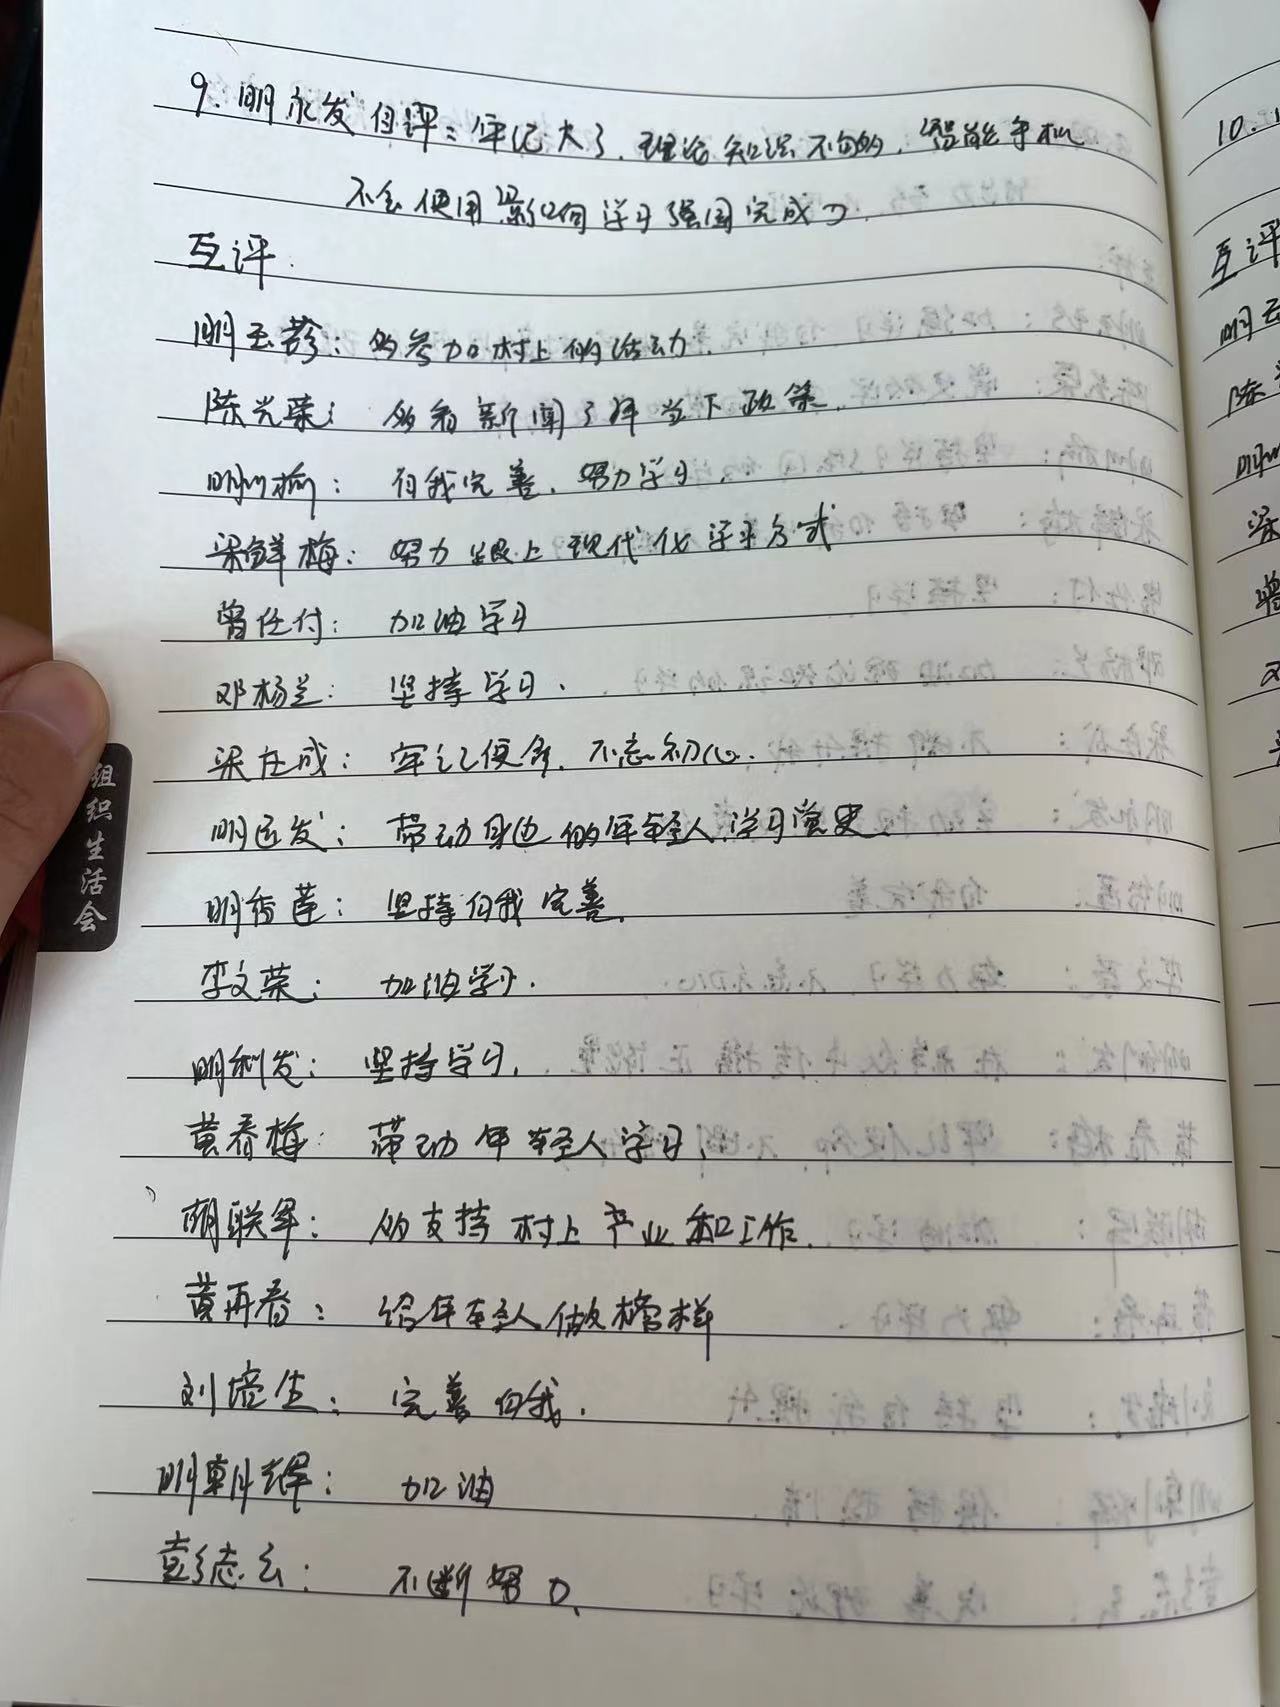 9. 明永发自评：年记大了，理论知识不够，智能手机
不会使用，影响学习强国完成
互评
明玉珍：多参加村上的活动
陈光荣：多看新闻了解当下政策
明州榆：自我完善，努力学习
梁鲜梅：努力跟上现代化学习方式
曾任付：加油学习
邓杨兰：坚持学习
梁在成：牢记使命，不忘初心
明远发：带动身边的年轻人学习党史
明香莲：坚持自我完善
李文荣：加油学习
明利发：坚持学习
黄春梅：带动年轻人学习
胡联军：多支持村上产业和工作
黄再春：给年轻人做榜样
刘培生：完善自我
明朝辉：加油
彭志云：不断努力
组织生活会
10.
互评